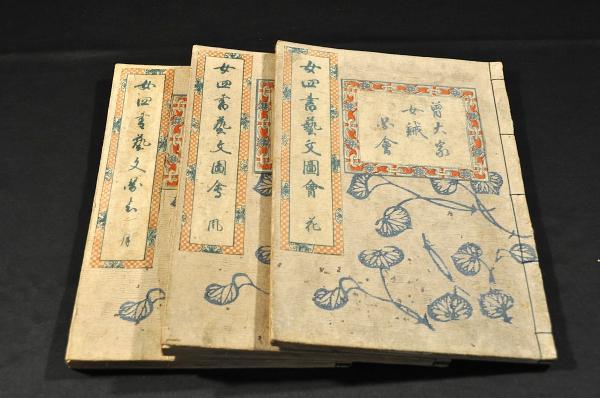 曹大家
女誡
圖會
女四書藝文圖會 花
女四書藝文圖會 風
女四書藝文圖會 月